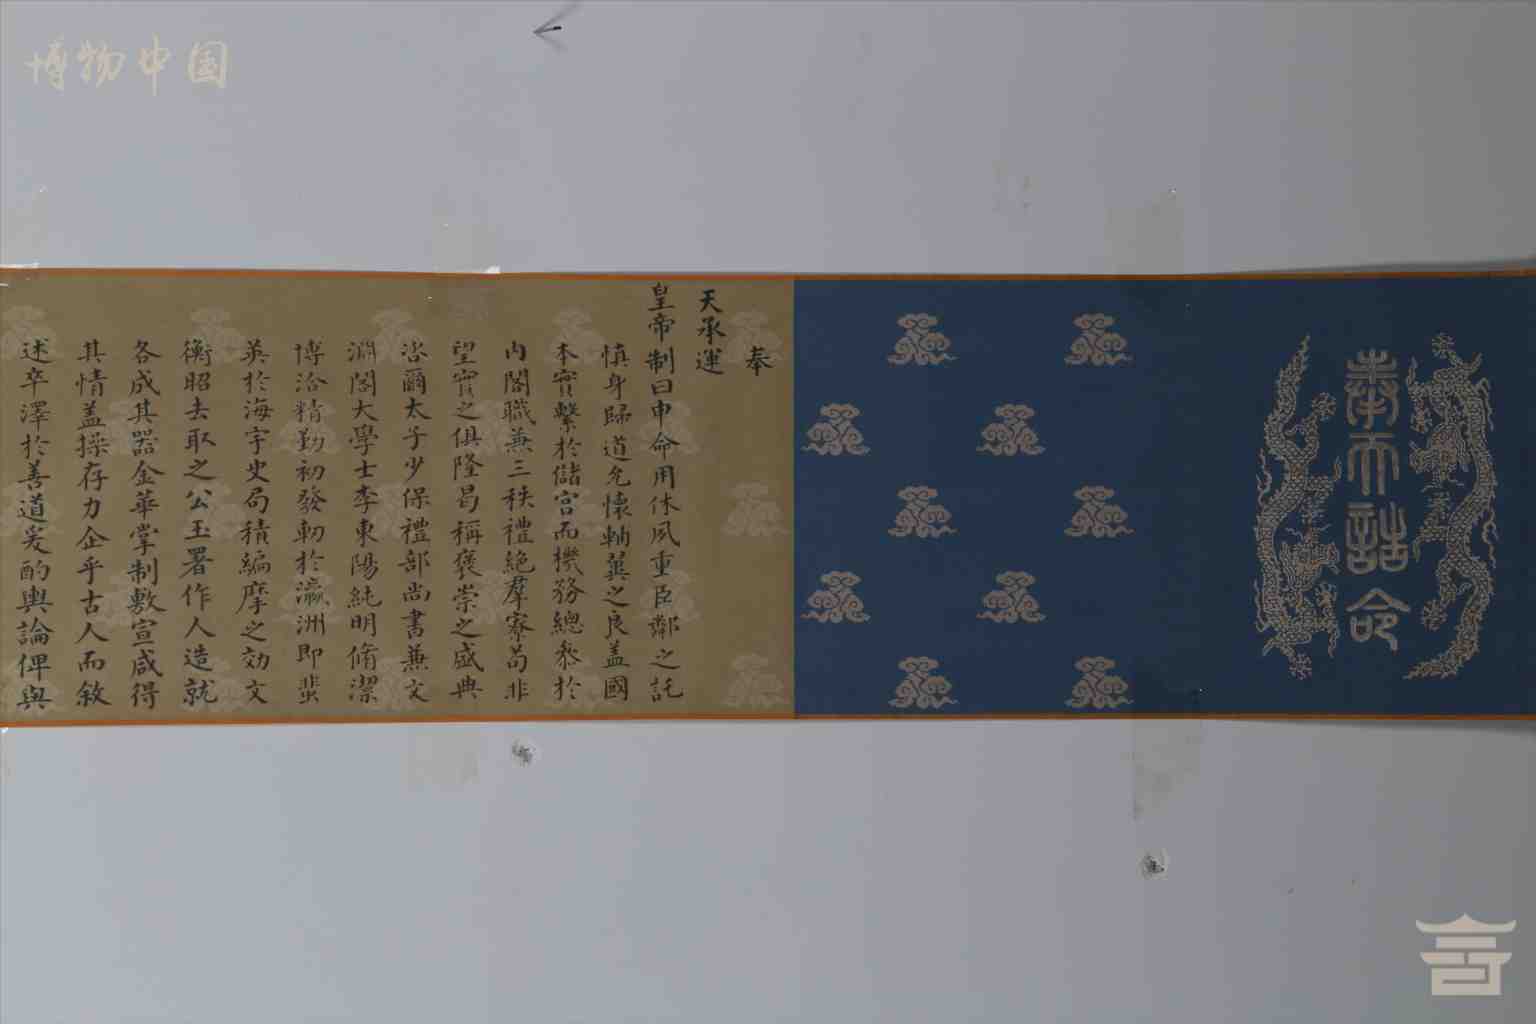 博物中国
奉天誥命
奉
天承運
皇帝制曰申命用休夙重臣鄰之託
慎身歸道允懷輔翼之良盖國
本實繫於儲宮而機務總叅於
内閣職兼三秩禮絶羣寮苟非
望實之俱隆曷稱褒崇之盛典
咨爾太子少保禮部尚書兼文
淵閣大學士李東陽純明脩潔
博洽精勤初發軔於瀛洲即蜚
英於海宇史局積編摩之効文
衡昭去取之公玉署作人造就
各成其器金華掌制敷宣咸得
其情盖操存力企乎古人而敘
述卒澤於善道爰酌輿論俾與